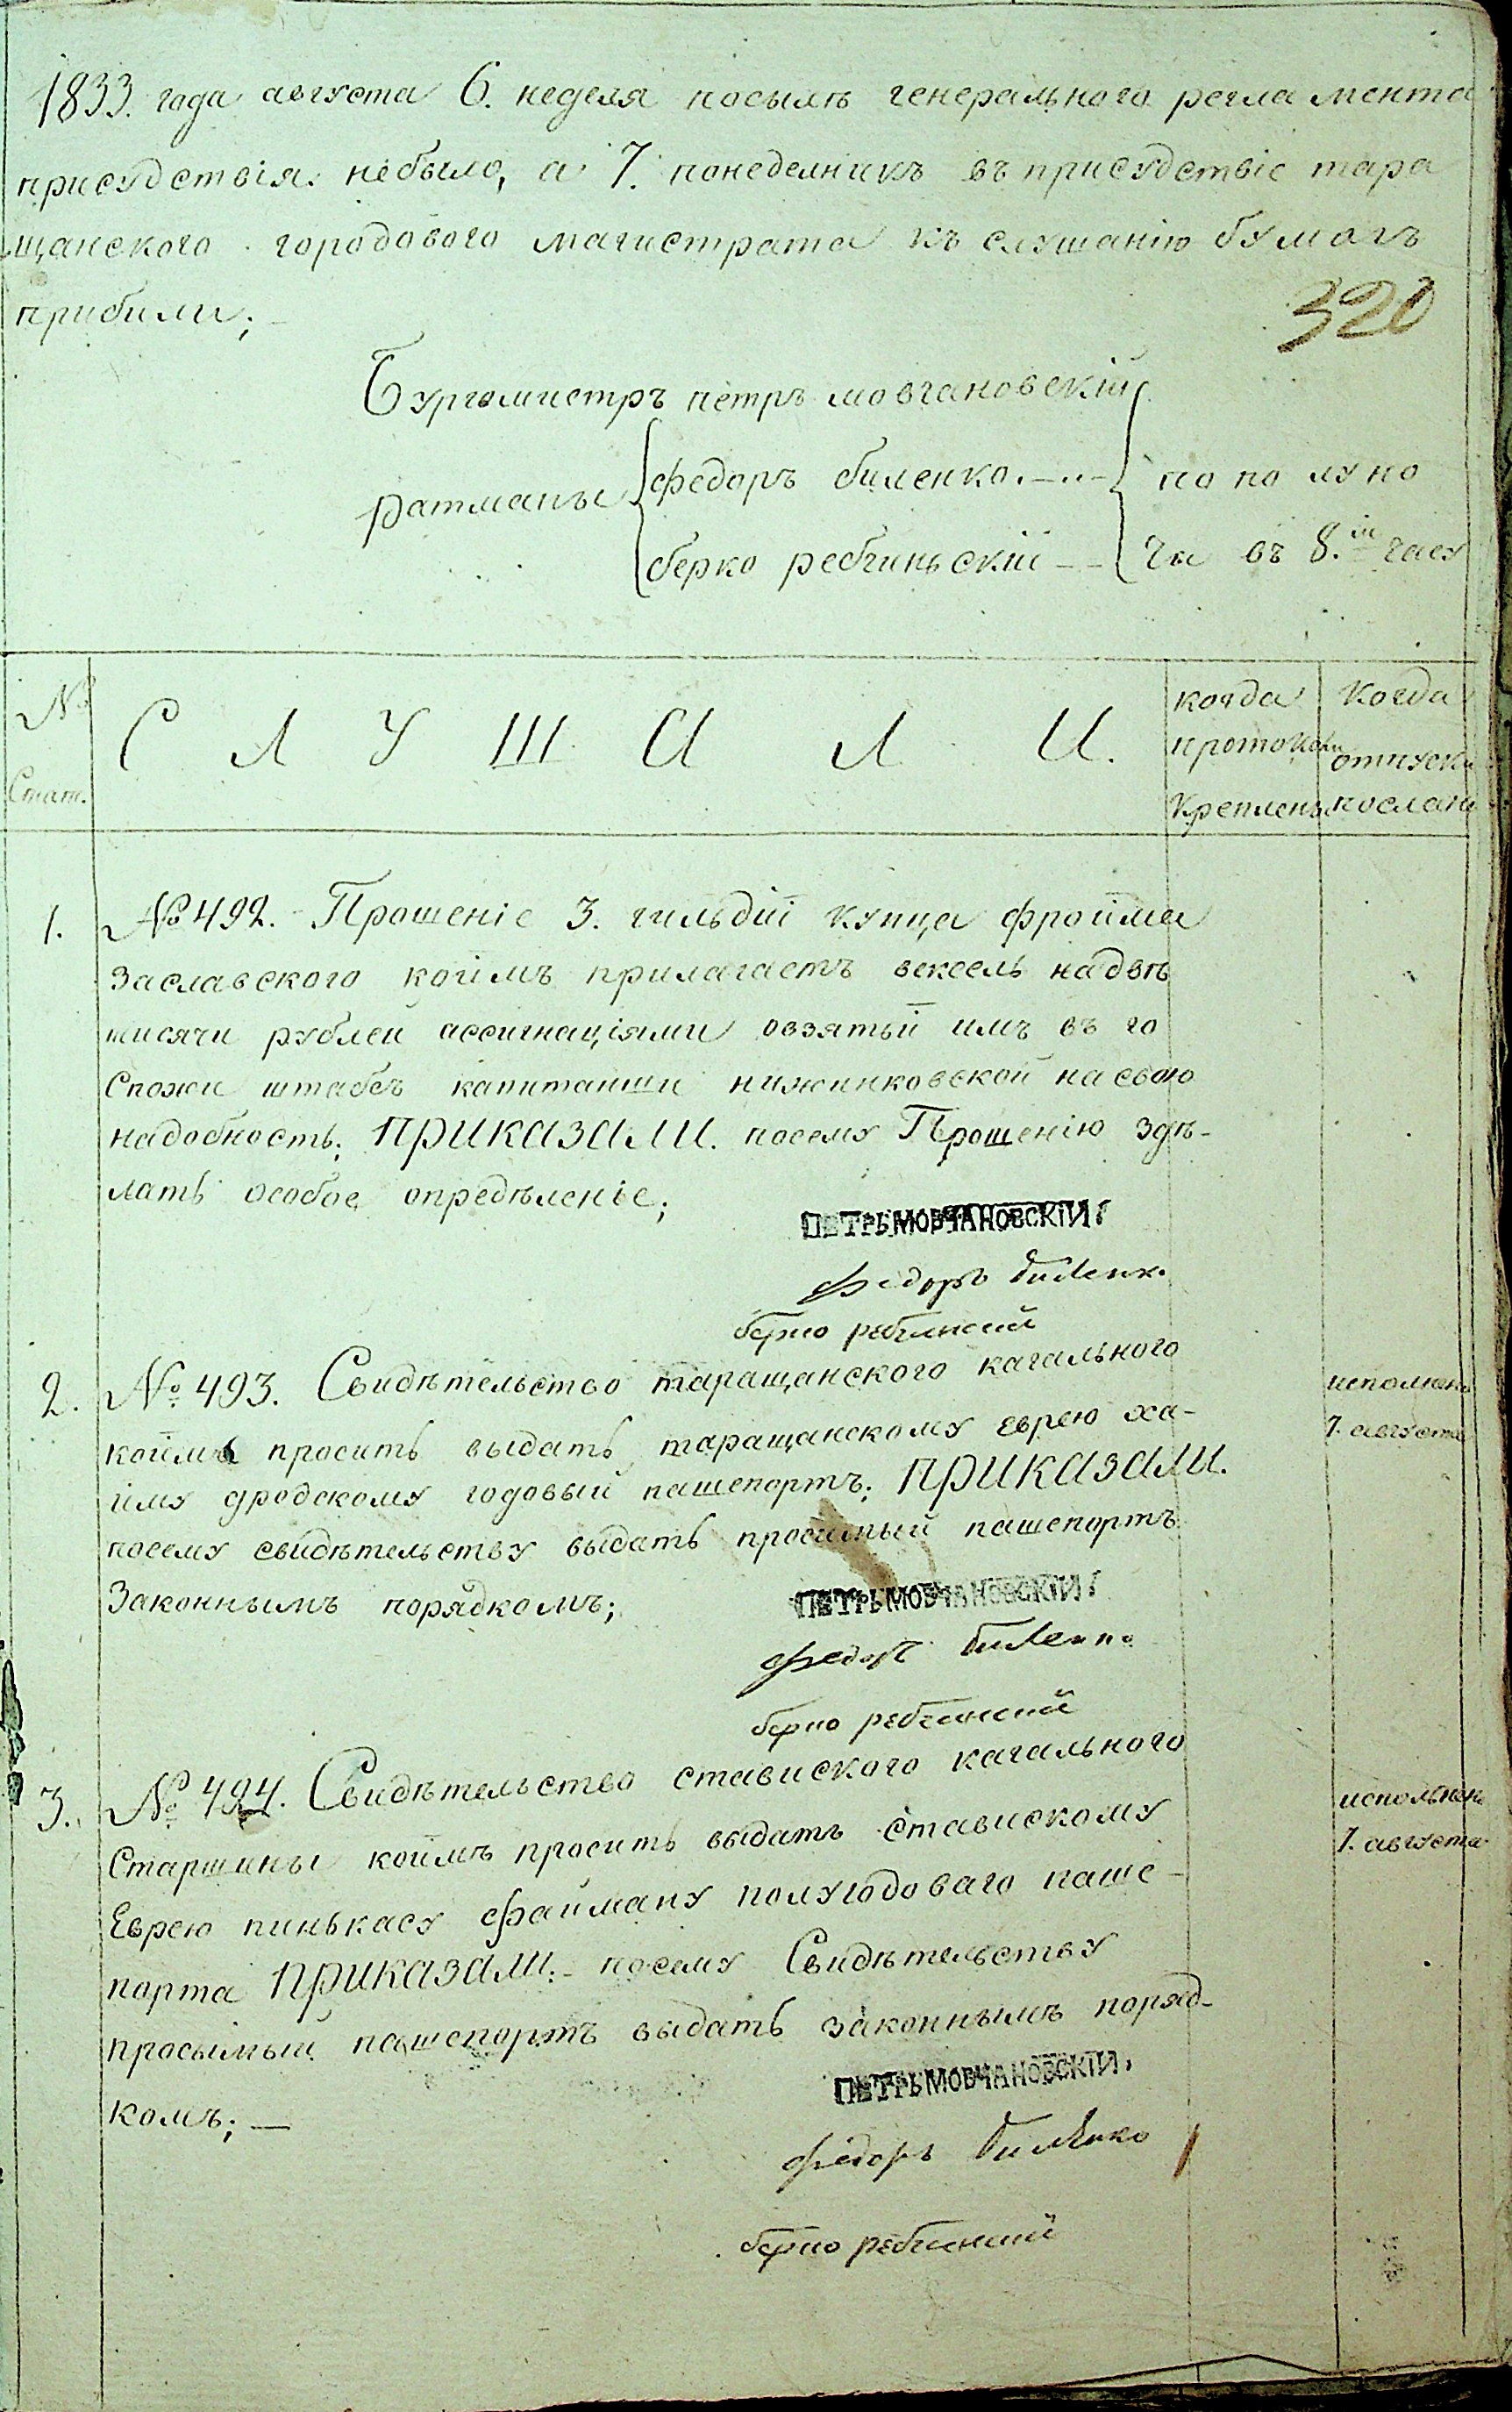 1833. года августа 6. неделя посылѣ генерального регламента
присудствія небыло, а 7. понеделникъ въ присудствіе тара
щанского городового магистрата къ слушанію бумагъ
прибили;
320
Бургомистръ петръ мовчановскій
ратманы
федоръ биленко.
берко ребчиньскій
по полуно
чи въ 8.м часу
№
Стат.
СЛУШАЛИ.
когда
протоколы
Креплены
Когда
отпуски
посланы
1. №492. Прошеніе 3. гильдіи купца фроима
Заславского коимъ прилагаетъ вексель надвѣ
тисячи рублей ассигнаціями овзятыи имъ въ го
Спожи штабсъ капитанши нижинковской на свою
надобность; ПРИКАЗАЛИ. посему Прошенію здѣ-
лать особое опредѣленіе;
ПЕТРЪ МОВЧАНОВСКІЙ
федоръ биленк.
берко ребчинский
2. №493. Свидѣтельство таращанского кагального
коимъ просить выдать таращанскому еврею ха-
иму дродскому годовый пашепортъ; ПРИКАЗАЛИ.
посему свидѣтельству выдать просимый пашепортъ
Законнымъ порядкомъ;
исполнено
7. августа
ПЕТРЪ МОВЧАНОВСКІЙ
федоръ биленко
берко ребчинский
3. № 494. Свидѣтельство ставиского кагального
Старшины коимъ просить выдать ставискому
Еврею пинькасу файману полугодоваго паше-
порта ПРИКАЗАЛИ:- посему Свидѣтельству
просымый пашепортъ выдать законнымъ поряд-
комъ; —
исполнено
7. августа
ПЕТРЪ МОВЧАНОВСКІЙ
федоръ биленко
берко ребчинский